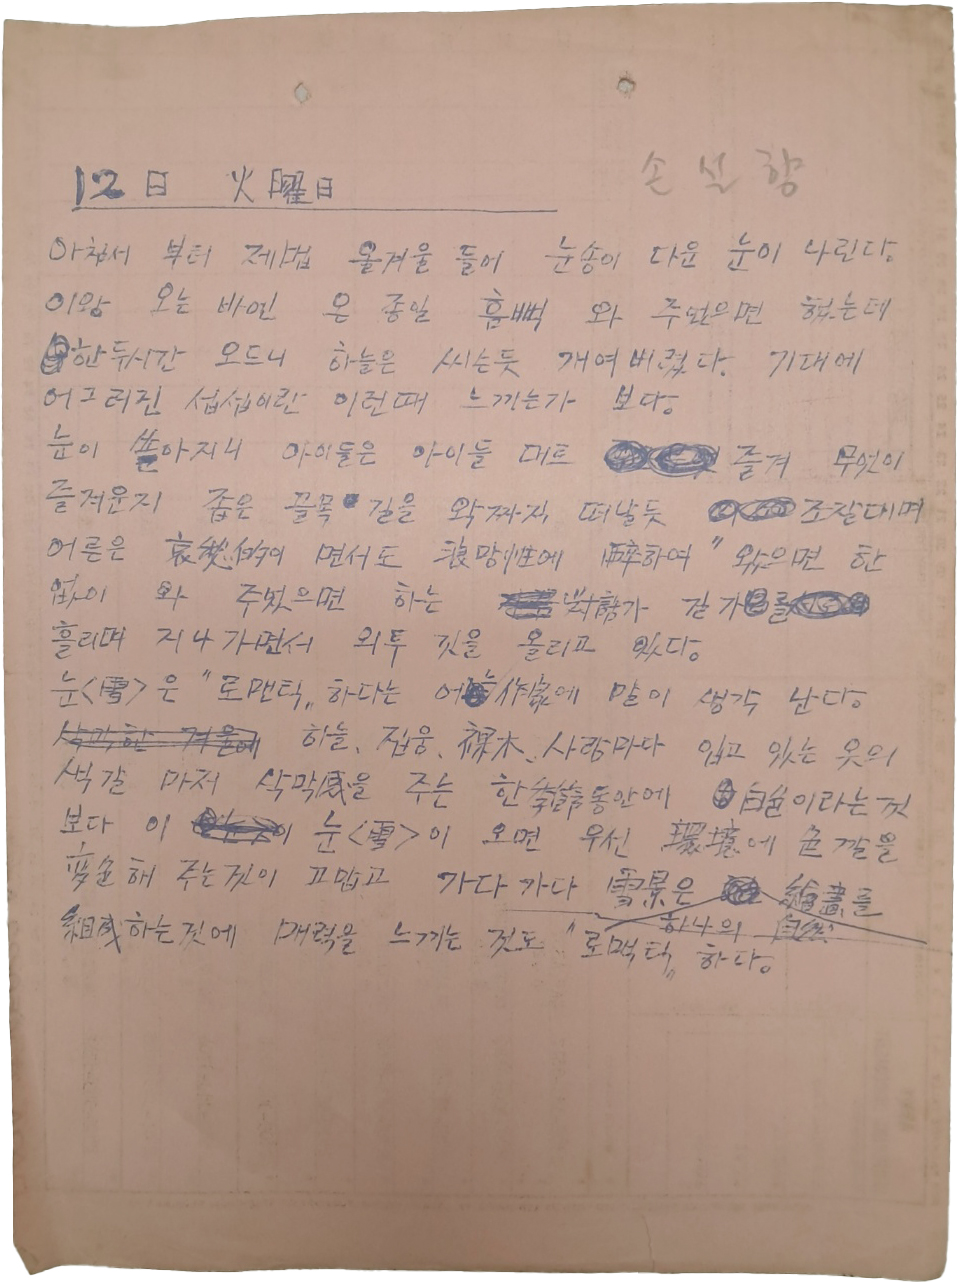 손설향
12日 火曜日
아침서 부터 제법 올겨울 들어 눈송이 다운 눈이 나린다.
이왕 오는 바엔 온 종일 흠뻑 와 주었으면 했는데
한두시간 오드니 하늘은 씨는듯 개여버렸다. 기대에
어그러진 섭섭이란 이런때 느끼는가 보다.
눈이 쏟아지니 아이들은 아이들 대로 즐겨 무엇이
즐거운지 좁은 골목 길을 왁짜지 떠날듯 조잘대며
어른은 면서도 浪漫性에 醉하여 "왔으면 한
없이 와 주었으면 하는 對話가 길가를
흘리며 지나가면서 외투 깃을 올리고 있다.
눈<雪>은 "로맨틱" 하다는 어느 作家에 말이 생각 난다.
삭막한 겨울에 하늘, 집웅, 裸木, 사람마다 입고 있는 옷의
색갈 마저 삭막感을 주는 한 季節동안에 白色이라는 것
보다 이 눈<雪>이 오면 우선 環境에 色깔을
變色해 주는것이 고맙고 가다 가다 雪景은 繪畫를
하나의 自然
組成하는것에 매력을 느끼는 것도 "로맥틱" 하다.